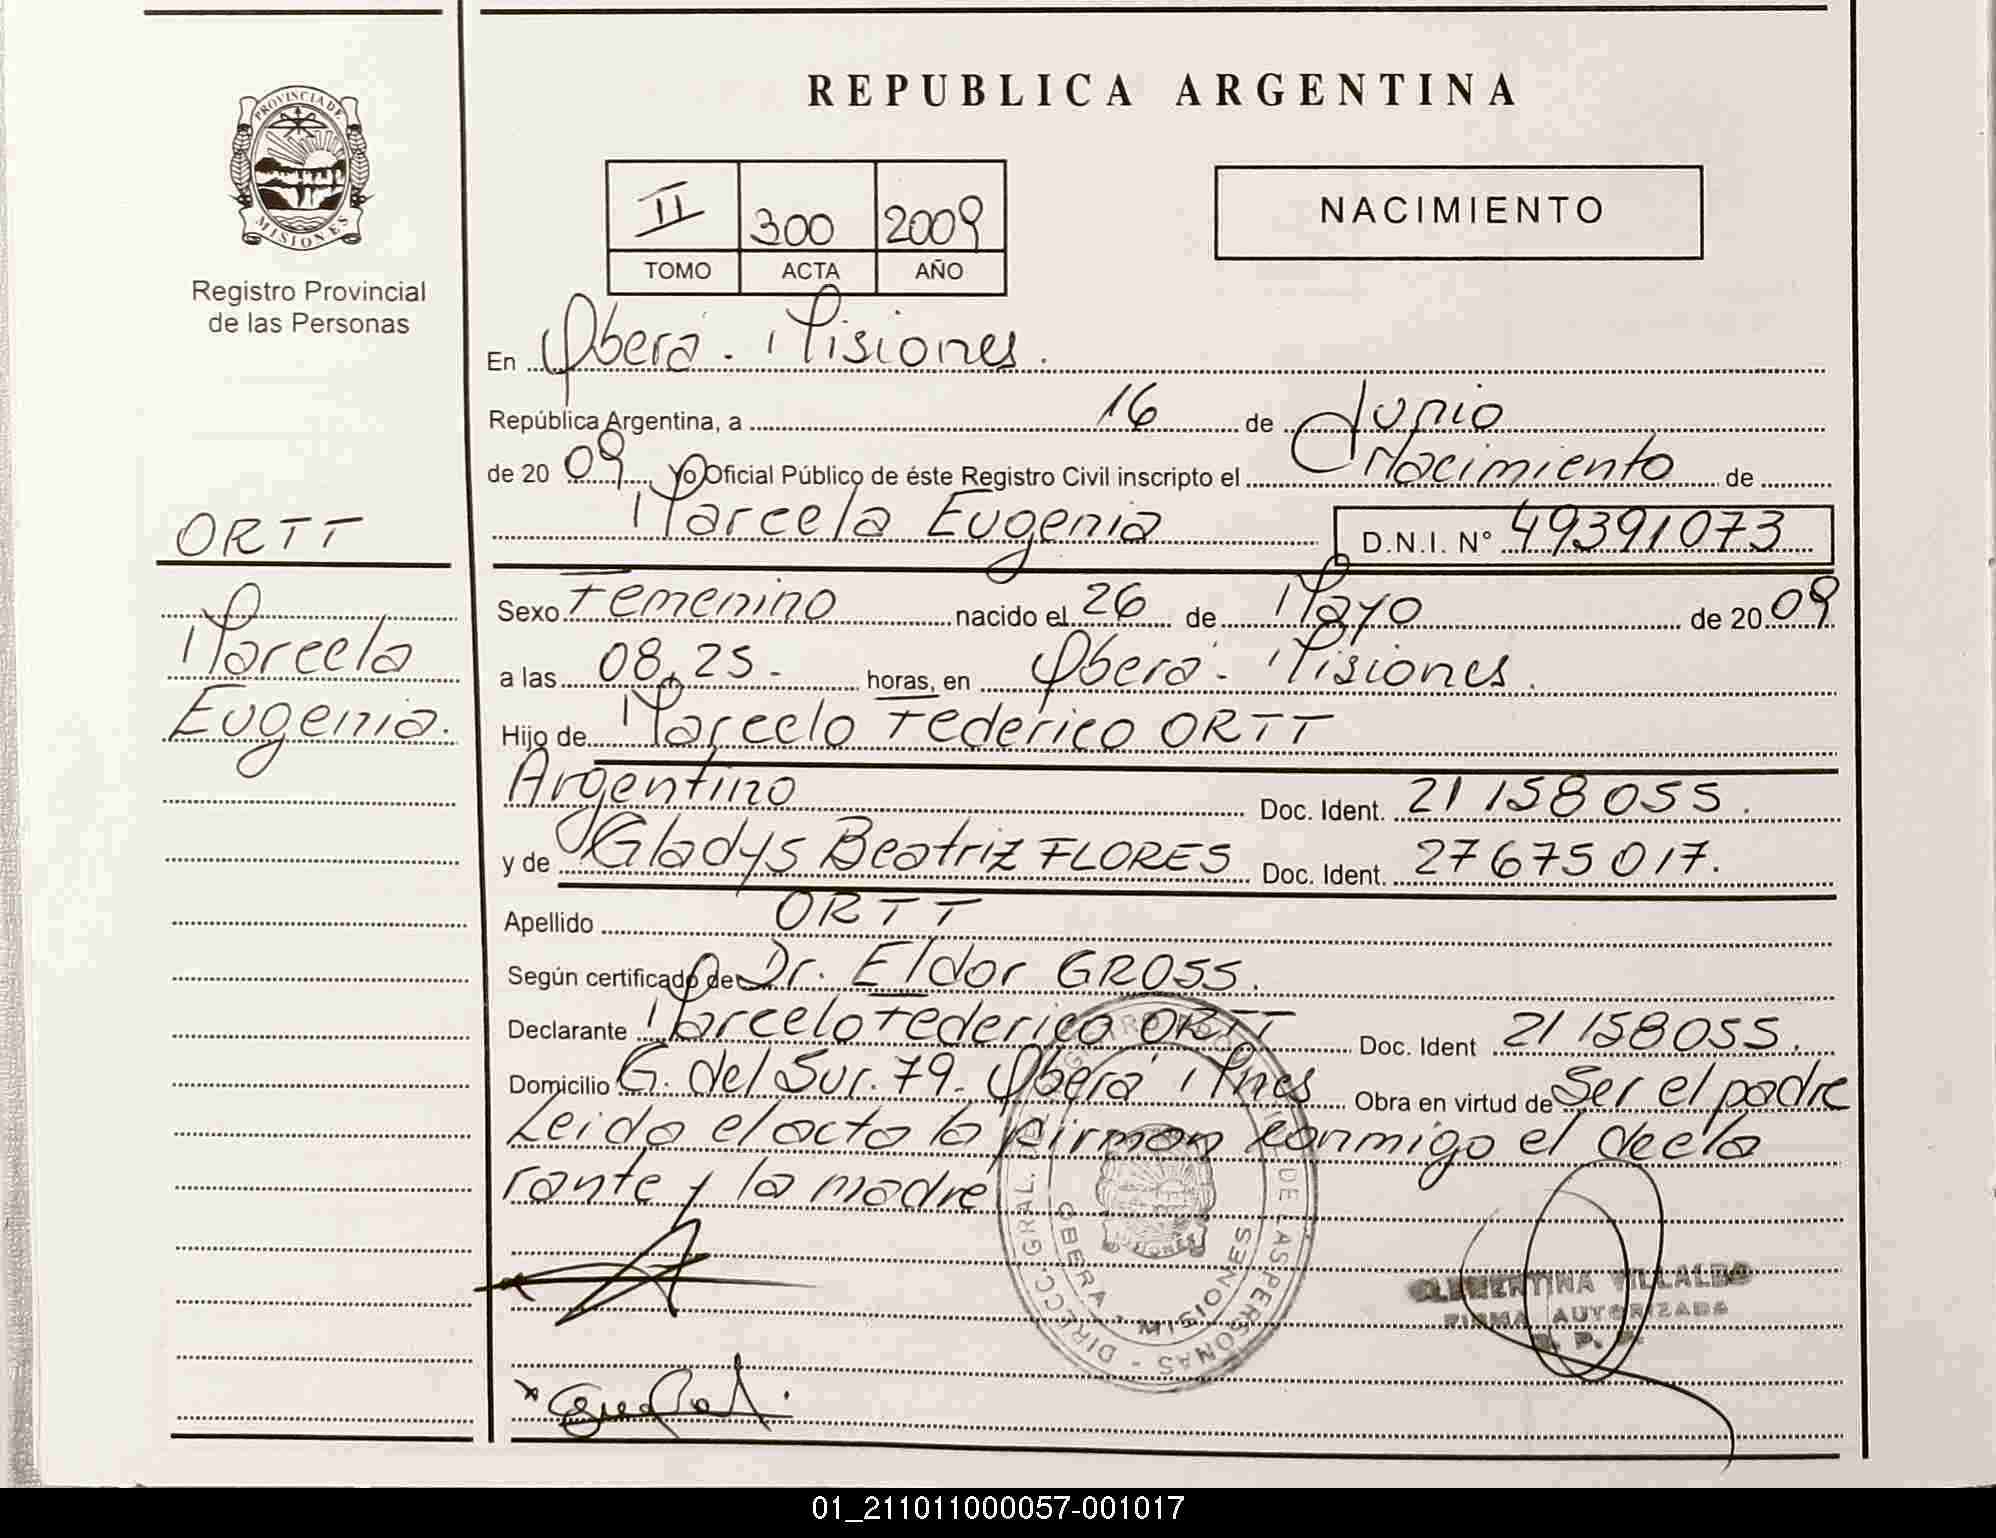 REPUBLICA ARGENTINA
PROVINCIA DE
MISIONES
Registro Provincial
de las Personas
II 300 2009
TOMO ACTA AÑO
NACIMIENTO
En Oberá. Misiones.
República Argentina, a 16 de Junio
de 2009, Yo Oficial Público de éste Registro Civil inscripto el Nacimiento de
Marcela Eugenia D.N.I. N° 49391073
ORTT
Marcela
Eugenia.
Sexo Femenino nacido el 26 de Mayo de 2009
a las 08,25. horas, en Oberá. Misiones.
Hijo de Marcelo Federico ORTT
Argentino Doc. Ident. 21158055.
y de Gladys Beatriz FLORES Doc. Ident. 27675017.
Apellido ORTT
Según certificado de Dr. Eldor GROSS.
Declarante Marcelo Federico ORTT Doc. Ident 21158055.
Domicilio G. del Sur. 79. Oberá Mnes Obra en virtud de Ser el padre
Leida el acta la firman conmigo el decla
rante y la madre
DIRECC. GRAL. REGISTRO PROVINCIAL DE LAS PERSONAS - OBERA - MISIONES
CLEMENTINA VILLALBO
FIRMA AUTORIZADA
R. P. P.
01_211011000057-001017